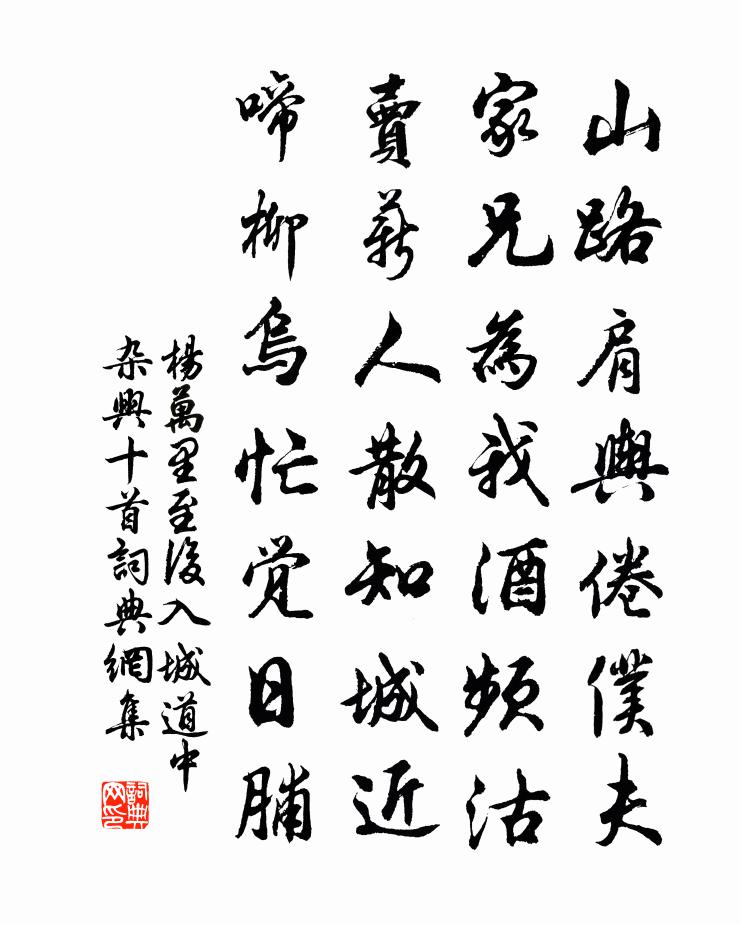 山路肩輿倦僕夫
家兄為我酒頻沽
賣薪人散知城近
啼柳烏忙覺日晡
楊萬里至後入城道中
杂興十首詞典網集
詞典网印